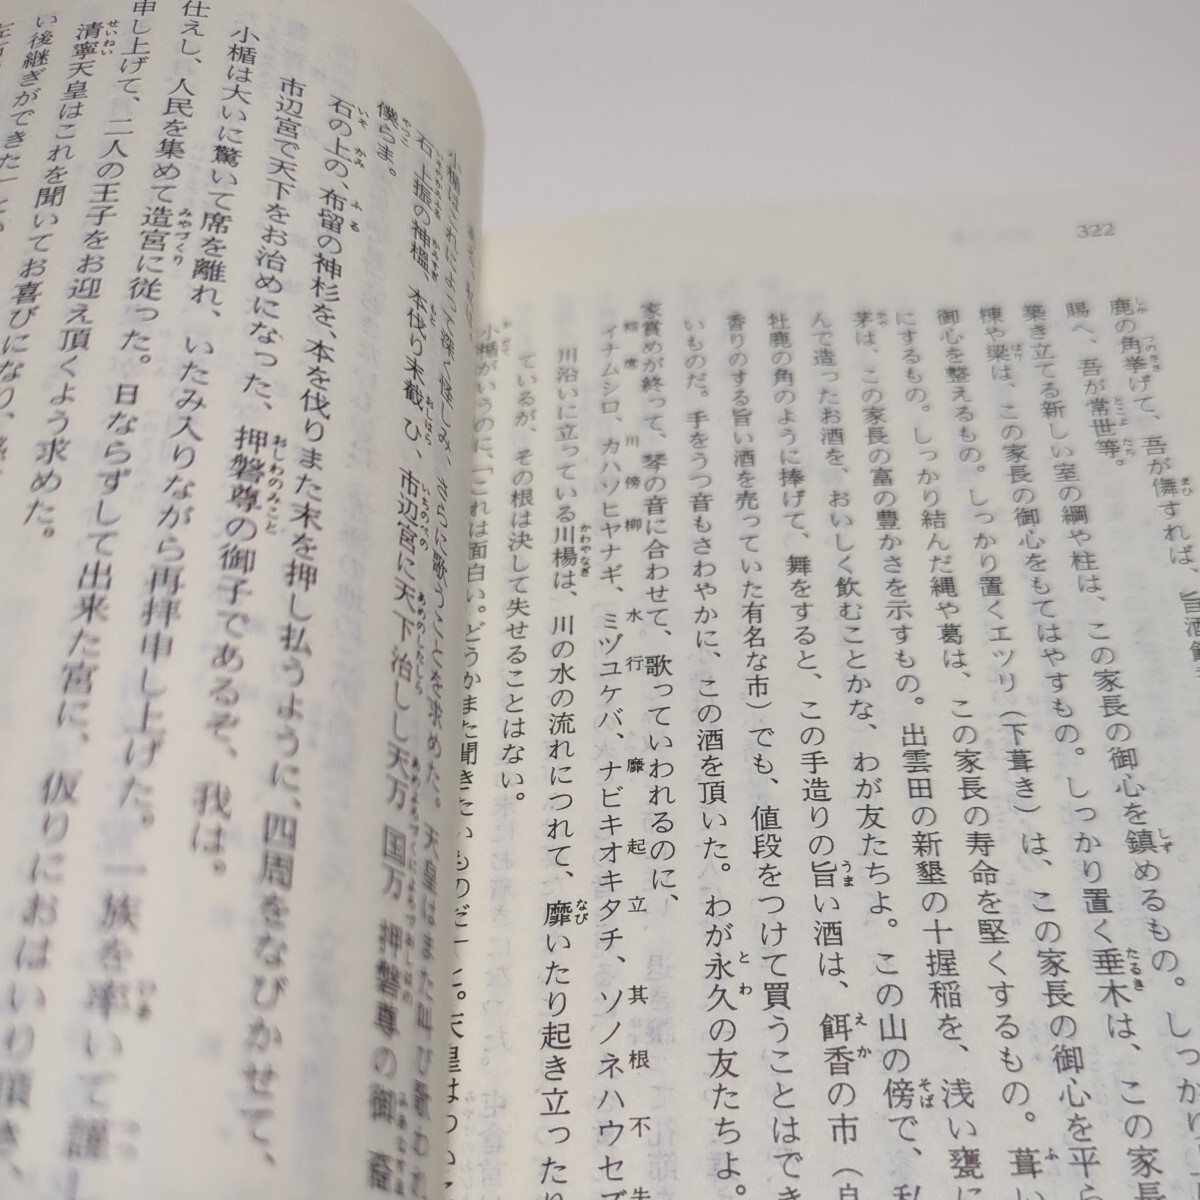 322
旨酒餌
鹿の角挙げて、吾が儛すれば、
賜へ、吾が常世等。
築き立てる新しい室の綱や柱は、この家長の御心を鎮めるもの。しっかり
棟や梁は、この家長の御心をもてはやすもの。しっかり置く垂木は、この家
御心を整えるもの。しっかり置くエツリ(下葺き)は、この家長の御心を平ら
にするもの。しっかり結んだ縄や葛は、この家長の寿命を堅くするもの。葺い
茅は、この家長の富の豊かさを示すもの。出雲田の新墾の十握稲を、浅い甕に
んで造ったお酒を、おいしく飲むことかな、わが友たちよ。この山の傍で、私
牡鹿の角のように捧げて、舞をすると、この手造りの旨い酒は、餌香の市(
香りのする旨い酒を売っていた有名な市)でも、値段をつけて買うことはでき
いものだ。手をうつ音もさわやかに、この酒を頂いた。わが永久の友たちよ。
家賞めが終って、琴の音に合わせて、歌っていわれるのに、
イナムシロ、カハソヒヤナギ、ミヅユケバ、ナビキオキタチ、ソノネハウセズ
川沿いに立っている川楊は、川の水の流れにつれて、靡いたり起き立ったり
ているが、その根は決して失せることはない。
小楯がいうのに、「これは面白い。どうかまた聞きたいものだ」と。天皇は
小楯はこれによって深く怪しみ、さらに歌うことを求めた。天皇はまた叫び歌われ
石上振の神榲、本伐り末截ひ、市辺宮に天下治しし天万国万押磐尊の御裔
僕らま。
石の上の、布留の神杉を、本を伐りまた末を押し払うように、四周をなびかせて、
市辺宮で天下をお治めになった、押磐尊の御子であるぞ、我は。
小楯は大いに驚いて席を離れ、いたみ入りながら再拝申し上げた。一族を率いて謹
仕えし、人民を集めて造宮に従った。日ならずして出来た宮に、仮りにおはいり頂き、
申し上げて、二人の王子をお迎え頂くよう求めた。
清寧天皇はこれを聞いてお喜びになり、
い後継ぎができた」と。